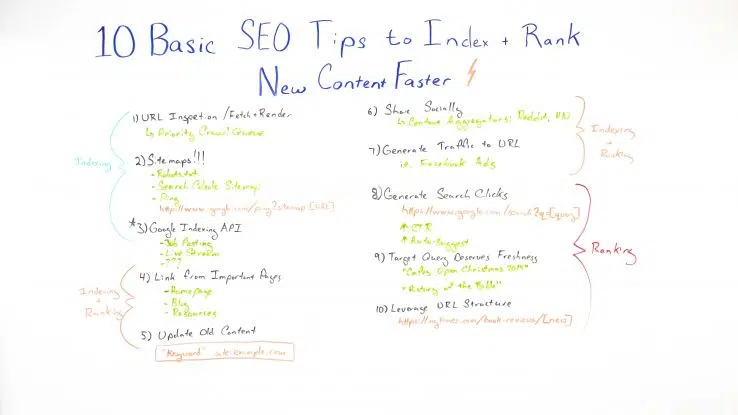 10 Basic SEO Tips to Index + Rank
New Content Faster
1) URL Inspetion / Fetch + Render
↳ Priority Crawl Queue
2) Sitemaps!!!
- Robots.txt
- Search Console Sitemap
- Ping
http://www.google.com/ping?sitemap=[URL]
*3) Google Indexing API
- Job Posting
- Live Stream
- ???
Indexing
4) Link from Important Pages
- Homepage
- Blog
- Resources
5) Update Old Content
"Keyword" site:example.com
Indexing
+
Ranking
6) Share Socially
↳ Content Aggregators: Reddit, HN
7) Generate Traffic to URL
i.e. Facebook Ads
Indexing
+
Ranking
8) Generate Search Clicks
https://www.google.com/search?q=[query]
↑ CTR
↑ Auto-Suggest
9) Target Query Deserves Freshness
Open Christmas 2019"
of the
10) Leverage URL Structure
https://nytimes.com/book-reviews/[new]
Ranking